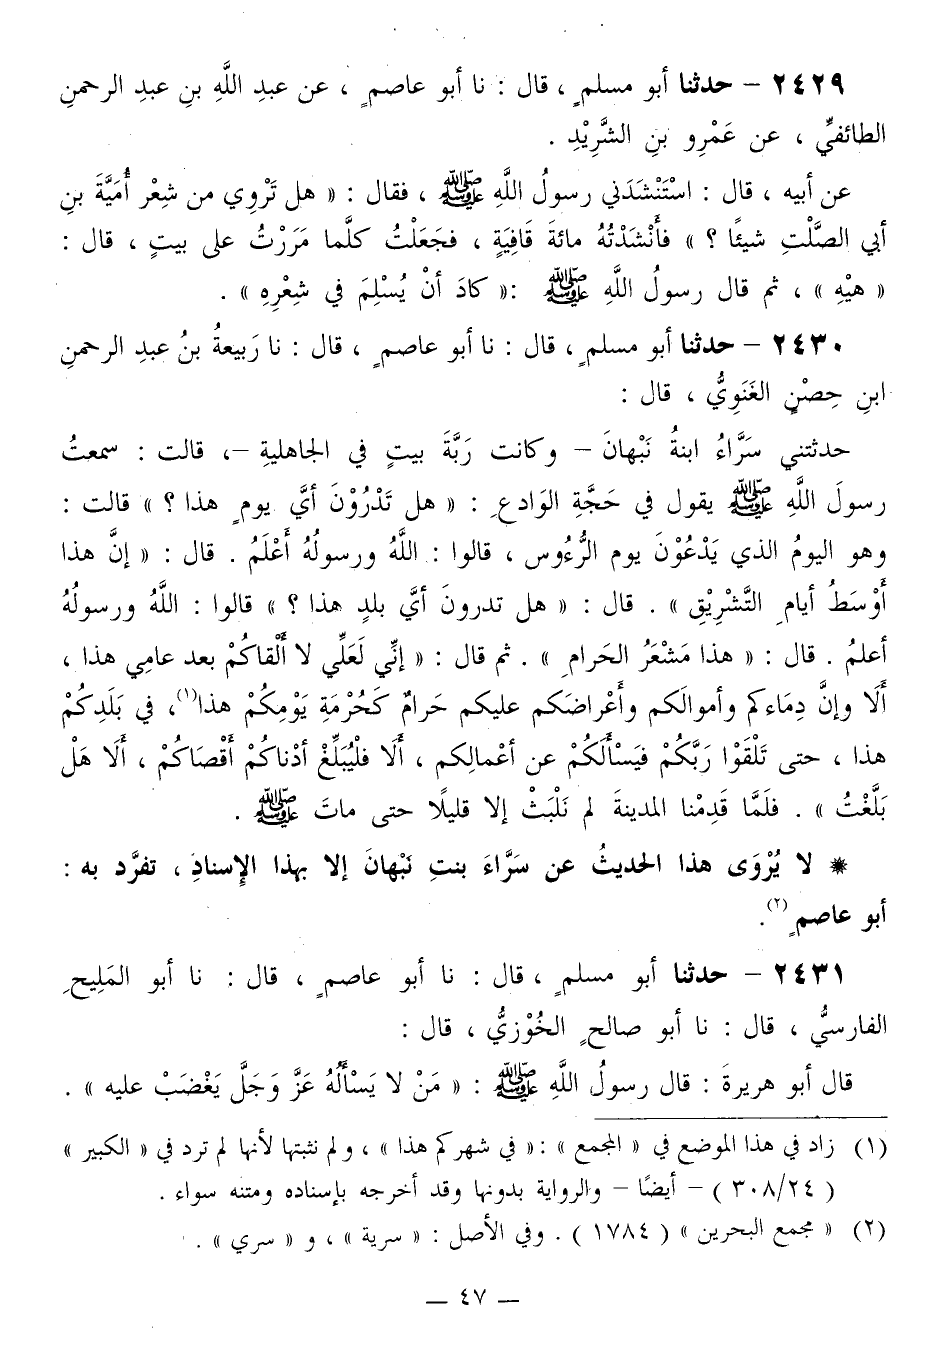 ٢٤٢٩ – حدثنا أبو مسلمٍ ، قال : نا أبو عاصمٍ ، عن عبدِ اللَّهِ بنِ عبدِ الرحمنِ
الطائفيِّ ، عن عَمْرِو بنِ الشَّرِيْدِ .
عن أبيه ، قال : اسْتَنْشَدَني رسولُ اللَّهِ ﷺ ، فقال : « هل تَرْوِي من شِعْر أُمَيَّةَ بنِ
أبي الصَّلْتِ شيئًا ؟ » فأَنْشَدْتُهُ مائةَ قَافِيَةٍ ، فجَعَلْتُ كلَّما مَرَرْتُ على بيتٍ ، قال :
« هيْهِ » ، ثم قال رسولُ اللَّهِ ﷺ :« كادَ أنْ يُسْلِمَ في شِعْرِهِ » .
٢٤٣٠ – حدثنا أبو مسلمٍ ، قال : نا أبو عاصمٍ ، قال : نا رَبيعةُ بنُ عبدِ الرحمنِ
ابنِ حِصْنٍ الغَنَوِيُّ ، قال :
حدثتني سَرَّاءُ ابنةُ نَبْهانَ – وكانت رَبَّةَ بيتٍ في الجاهليةِ –، قالت : سمعتُ
رسولَ اللَّهِ ﷺ يقول في حَجَّةِ الوَادعِ : « هل تَدْرُوْنَ أيَّ يومٍ هذا ؟ » قالت :
وهو اليومُ الذي يَدْعُوْنَ يوم الرُّءُوس ، قالوا : اللَّهُ ورسولُهُ أَعْلَمُ . قال : « إنَّ هذا
أَوْسَطُ أيامِ التَّشْرِيْقِ » . قال : « هل تدرونَ أيَّ بلدٍ هذا ؟ » قالوا : اللَّهُ ورسولُهُ
أعلمُ . قال : « هذا مَشْعَرُ الحَرامِ » . ثم قال : « إنِّي لَعَلِّي لا أَلْقاكُمْ بعد عامِي هذا ،
أَلَا وإنَّ دِمَاءكم وأموالَكم وأَعْراضَكم عليكم حَرامٌ كَحُرْمَةِ يَوْمِكُمْ هذا(١)، في بَلَدِكُمْ
هذا ، حتى تَلْقَوْا رَبَّكُمْ فيَسْأَلَكُمْ عن أعْمالِكم ، أَلَا فلْيُبَلِّغْ أدْناكُمْ أَقْصَاكُمْ ، أَلَا هَلْ
بَلَّغْتُ » . فلَمَّا قَدِمْنا المدينةَ لم نَلْبَثْ إلا قليلًا حتى ماتَ ﷺ .
* لا يُرْوَى هذا الحديثُ عن سَرَّاءَ بنتِ نَبْهانَ إلا بهذا الإسنادِ ، تفرَّد به :
أبو عاصمٍ(٢).
٢٤٣١ – حدثنا أبو مسلمٍ ، قال : نا أبو عاصمٍ ، قال : نا أبو المَلِيحِ
الفارسيُّ ، قال : نا أبو صالحٍ الخُوْزيُّ ، قال :
قال أبو هريرةَ : قال رسولُ اللَّهِ ﷺ : « مَنْ لا يَسْأَلُهُ عَزَّ وَجَلَّ يَغْضَبْ عليه » .
(١) زاد في هذا الموضع في « المجمع » :« في شهركم هذا » ، ولم نثبتها لأنها لم ترد في « الكبير »
( ٣٠٨/٢٤ ) – أيضًا – والرواية بدونها وقد أخرجه بإسناده ومتنه سواء .
(٢) « مجمع البحرين » ( ١٧٨٤ ) . وفي الأصل : « سرية » ، و « سري » .
– ٤٧ –